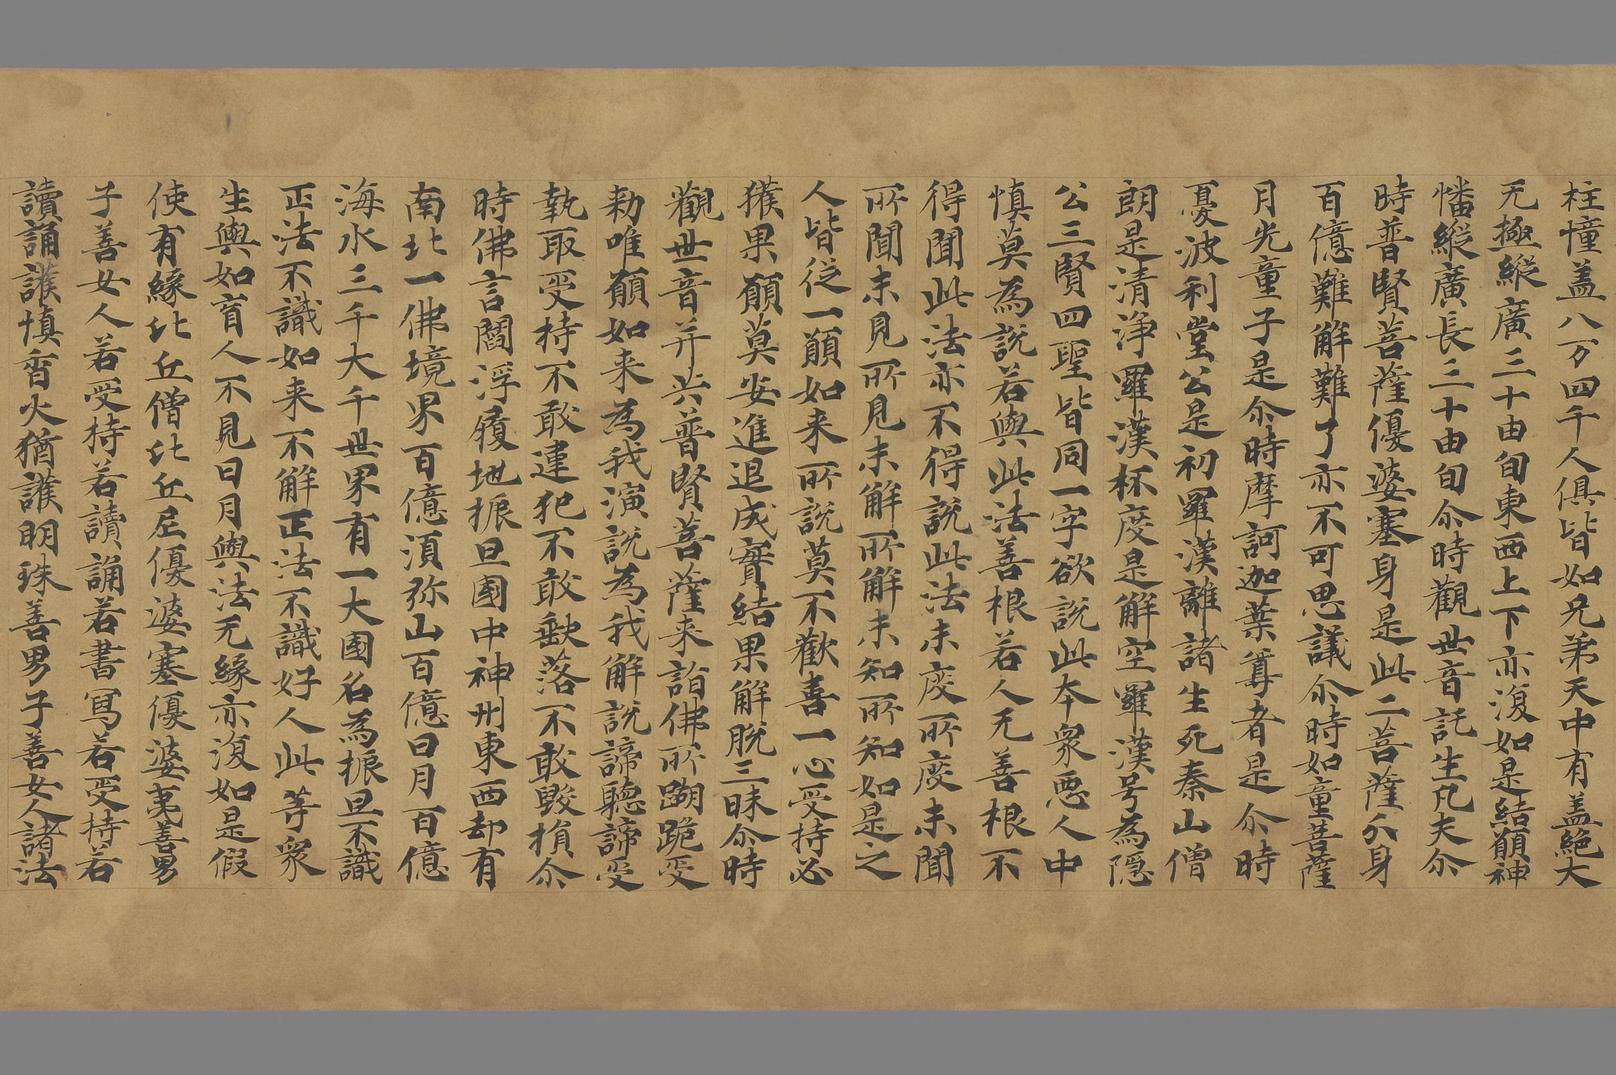 柱憧盖八万四千人俱皆如兄弟天中有盖絶大
无極縱廣三十由旬東西上下亦復如是結願神
幡縱廣長三十由旬尒時觀世音託生凡夫尒
時普賢菩薩優婆塞身是此二菩薩分身
百億難解難了亦不可思議尒時如童菩薩
月光童子是尒時摩訶迦葉尊者是尒時
憂波利堂公是初羅漢離諸生死秦山僧
朗是清淨羅漢杯度是解空羅漢号為隱
公三賢四聖皆同一字欲說此本衆惡人中
慎莫為說若與此法善根若人无善根不
得聞此法亦不得說此法未度所度未聞
所聞未見所見未解所解未知所知如是之
人皆從一願如来所說莫不歡喜一心受持必
獲果願莫安進退成實結果解脫三昧尒時
觀世音并共普賢菩薩来詣佛所踟跪受
勑唯願如来為我演說為我解說諦聽諦受
執取受持不敢違犯不敢缺落不敢毀損尒
時佛言閻浮履地振旦國中神州東西却有
南北一佛境界百億湏弥山百億日月百億
海水三千大千世界有一大國名為振旦不識
正法不識如来不解正法不識好人此等衆
生輿如盲人不見日月輿法无緣亦復如是假
使有緣比丘僧比丘尼優婆塞優婆夷善男
子善女人若受持若讀誦若書寫若受持若
讀誦護慎香火猶護明珠善男子善女人諸法